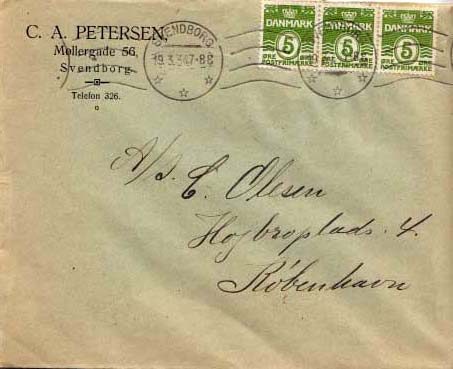 C. A. PETERSEN,
Møllergade 56,
Svendborg.
Telefon 326.
SVENDBORG
19.3.34 7-8
DANMARK
5
ØRE
POSTFRIMÆRKE
DANMARK
5
ØRE
POSTFRIMÆRKE
DANMARK
5
ØRE
POSTFRIMÆRKE
A/S. C. Olesen
Højbroplads. 4.
København